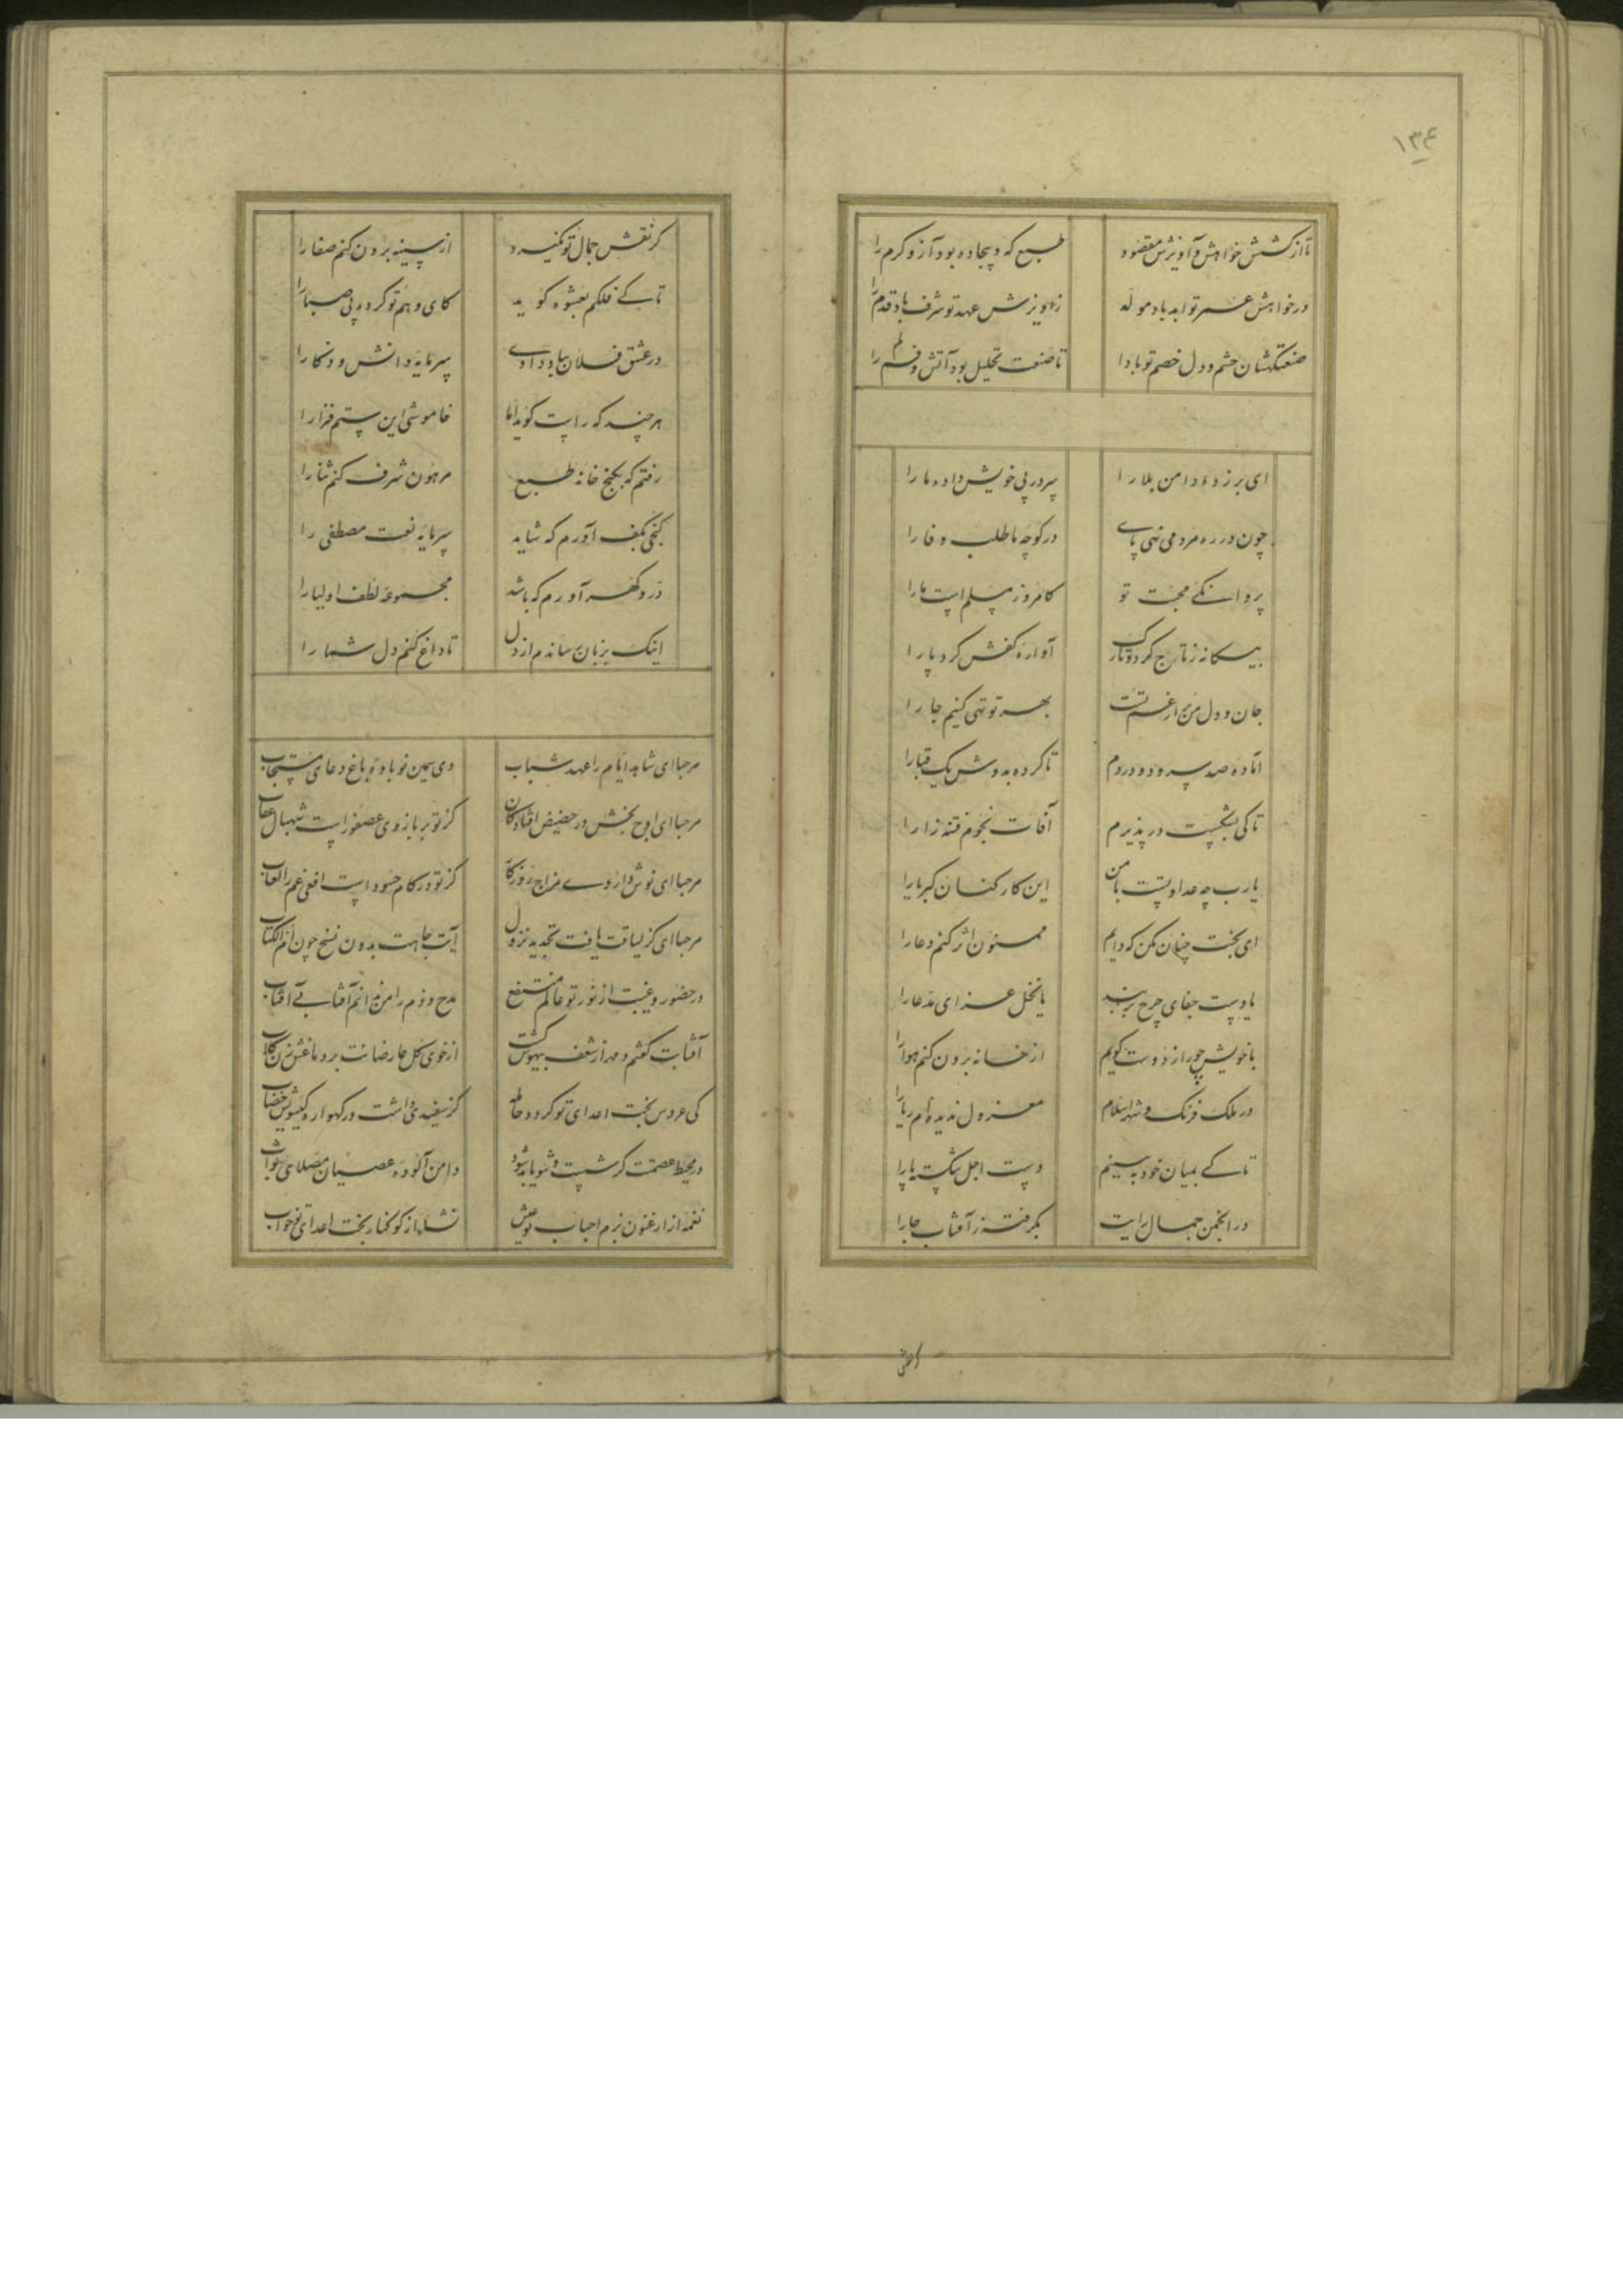 ۱۳۴
تا از کشش خواهش و آویزش مقصود طبع که و بیجاده بود آز و کرم را
در خواهش عمر تو ابد باد موله ز آویزش عهد تو شرف باد قدم را
صنعتکشان چشم و دل خصم تو بادا تا صنعت تحلیل بود آتش و نم را
ای بر زده دامن بلا را سر در پی خویش داده ما را
چون در ره مردمی نهی پای در کوچه ما طلب وفا را
پروانگی محبت تو کامروز مسلم است ما را
بیگانه ز تارج کرد و تارک آواره کفش کرد پا را
جان و دل من پر از غم تست بهر تو تهی کنیم جا را
آماده صد سرود دردم تا کرده بدوش یک قبا را
تا کی بشکست در پذیرم آفات نجوم فتنه زا را
یارب چه عداوتست با من این کارکنان کبریا را
ای بخت چنان مکن که دایم ممنون اثر کنم دعا را
یا دست جفای چرخ بربند یا نخل عزای مدعا را
با خویش چو راز دوست گویم از خانه برون کنم هوا را
در ملک فرنگ و شهر اسلام معزول ندیده‌ام ریا را
تا کی بمیان خود به بینم دست اجل شکسته پا را
در انجمن جمال رایت بگرفته ز آفتاب جا را
گر نقش جمال تو نگیرد از سینه برون کنم صفا را
تا کی فلکم بعشوه گوید کای وهم تو کرده پی صبا را
در عشق فلان بباد دادی سرمایه دانش و ذکا را
هر چند که راست گوید اما خاموشی این ستم فزا را
رفتم که بکنج خانه طبع مرهون شرف کنم ثنا را
گنجی بکف آورم که شاید سرمایه نعت مصطفی را
در و گهر آورم که باشد مجموعه لطف اولیا را
اینک بزبان ساندم از دل تا داغ کنم دل شما را
مرحبا ای شاهد ایام را عهد شباب وی یمین نوباوه باغ دعای مستجاب
مرحبا ای اوج بخش در حضیض افتادگان کز تو بر بازوی عصفور است شهبال عقاب
مرحبا ای نوش داروی مزاج روزگار کز تو در کام حسود است افعی غم را لعاب
مرحبا ای کز لیاقت یافت تجدید نزول آیت جاهت بدون نسخ چون ام الکتاب
در حضور و غیبت از نور تو عالم منتفع مدح و ذم را من ندانم آفتابی آفتاب
آفتابت گفتم و مهر از شعف بیهوش گشت از خوی گل عارضانت بر دماغش زن گلاب
کی عروس بخت اعدای تو گردد حامله کز سفیدی داشت در گهواره گیسویش خضاب
در محیط عصمتت گر شست و شو یابد شود دامن آلوده عصیان مصلای ثواب
نغمه از ارغنون بزم احباب تو عیش نشاه از کوکنار بخت اعدای تو خواب